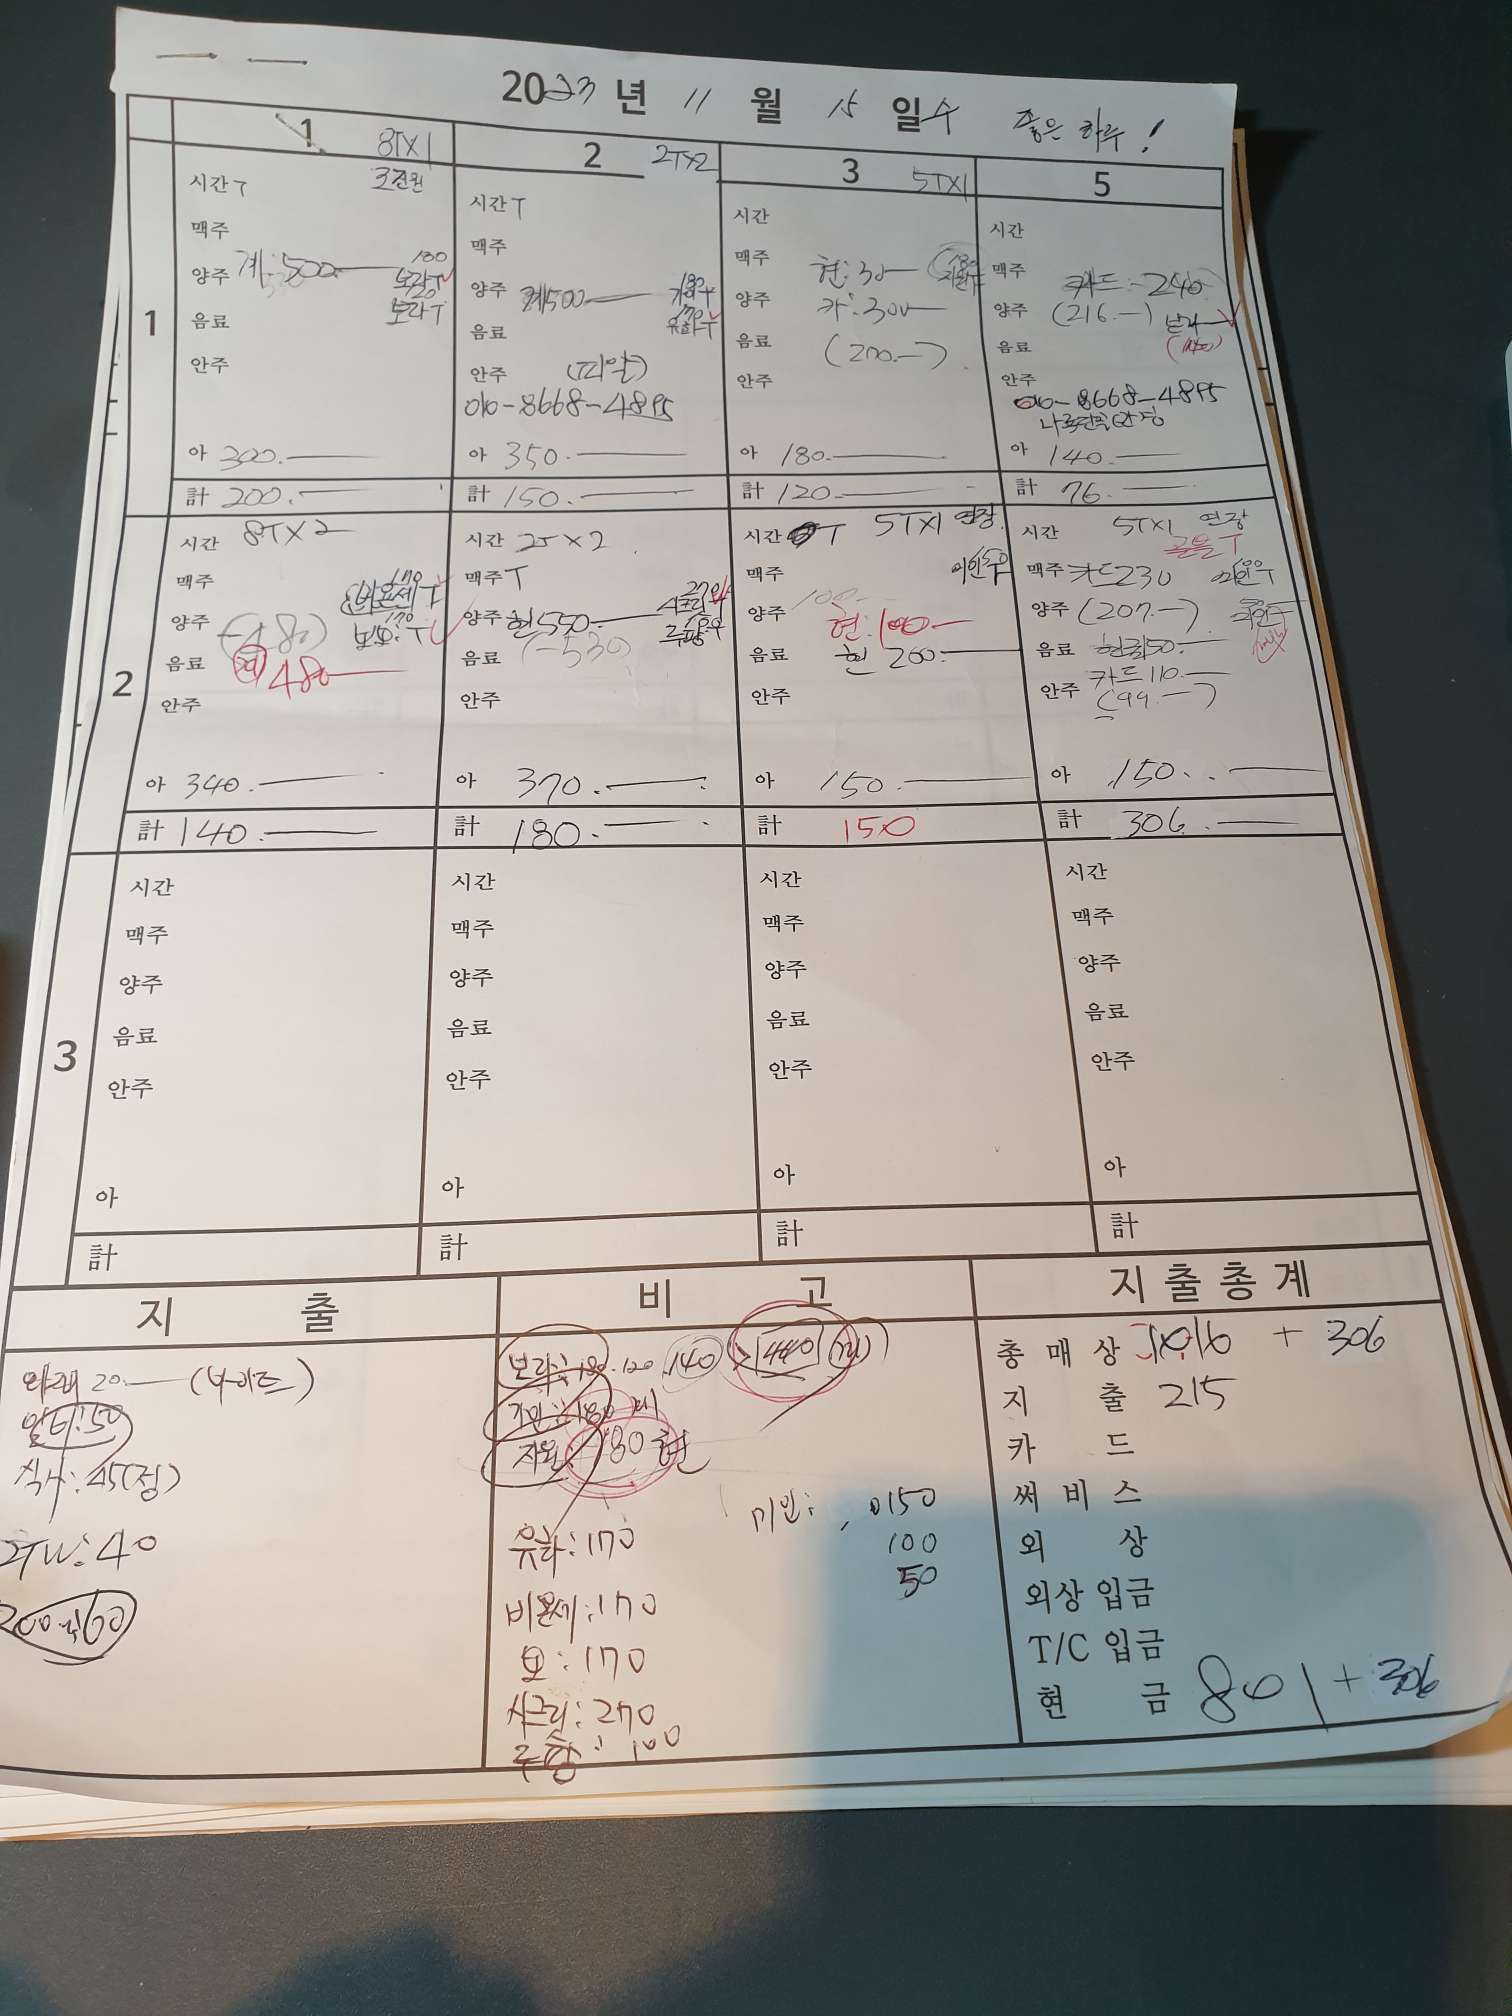 2023년 11 월 15 일 수 좋은 하루!
1 8TX1
2 2TX2
3 5TX1
5
1
시간 T
맥주
양주 계:500
180
보라T
120
보라T
음료
안주
아 300.
計 200.
시간 T
맥주
양주 계500
180
음료
170
유하T
안주 (띠일)
010-8668-4895
아 350.
計 150.
시간
맥주 현:30
180
양주 카:300
음료 (270.-)
안주
아 180.
計 120.
시간
맥주 카드:240
양주 (216.-)
음료
안주
010-8668-4895
아 140.
計 76.
2
시간 8TX2
맥주
170
비욘세T
양주 (-480)
170
보: T
음료 480
안주
아 340.
計 140.
시간 2TX2
맥주 T
270
양주 현550
100
음료 (-530)
안주
아 370.
計 180.
시간 T 5TX1 연장
맥주
150
미인
양주 현:100
음료 현 200.
안주
아 150.
計 150
시간 5TX1 연장
맥주 카드230
100
미인T
양주 (207.-)
음료 현금150.
안주 카드110.
(99.-)
아 150.
計 306.
3
시간
맥주
양주
음료
안주
아
計
시간
맥주
양주
음료
안주
아
計
시간
맥주
양주
음료
안주
아
計
시간
맥주
양주
음료
안주
아
計
지 출
20.
50
식사:45(정)
40
200 60
비 고
보라: 180.120. 140 > 440
180
지원: 180현
유하:170
비욘세:170
보:170
시크릿:270
100
미인: 150
100
50
지출총계
총 매 상 1016 + 306
지 출 215
카 드
써 비 스
외 상
외상 입금
T/C 입금
현 금 801 + 306